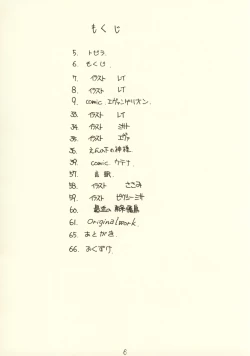 もくじ
5. トビラ
6. もくじ
7. イラスト レイ
8. イラスト レイ
9. comic エヴァンゲリオン
33. イラスト レイ
34. イラスト ミサト
35. イラスト エヴァ
36. えんの下の神様
39. comic カテナ
57.
58. イラスト ささみ
59. イラスト
60.
61. Original work
65. あとがき
66. おくずけ
6